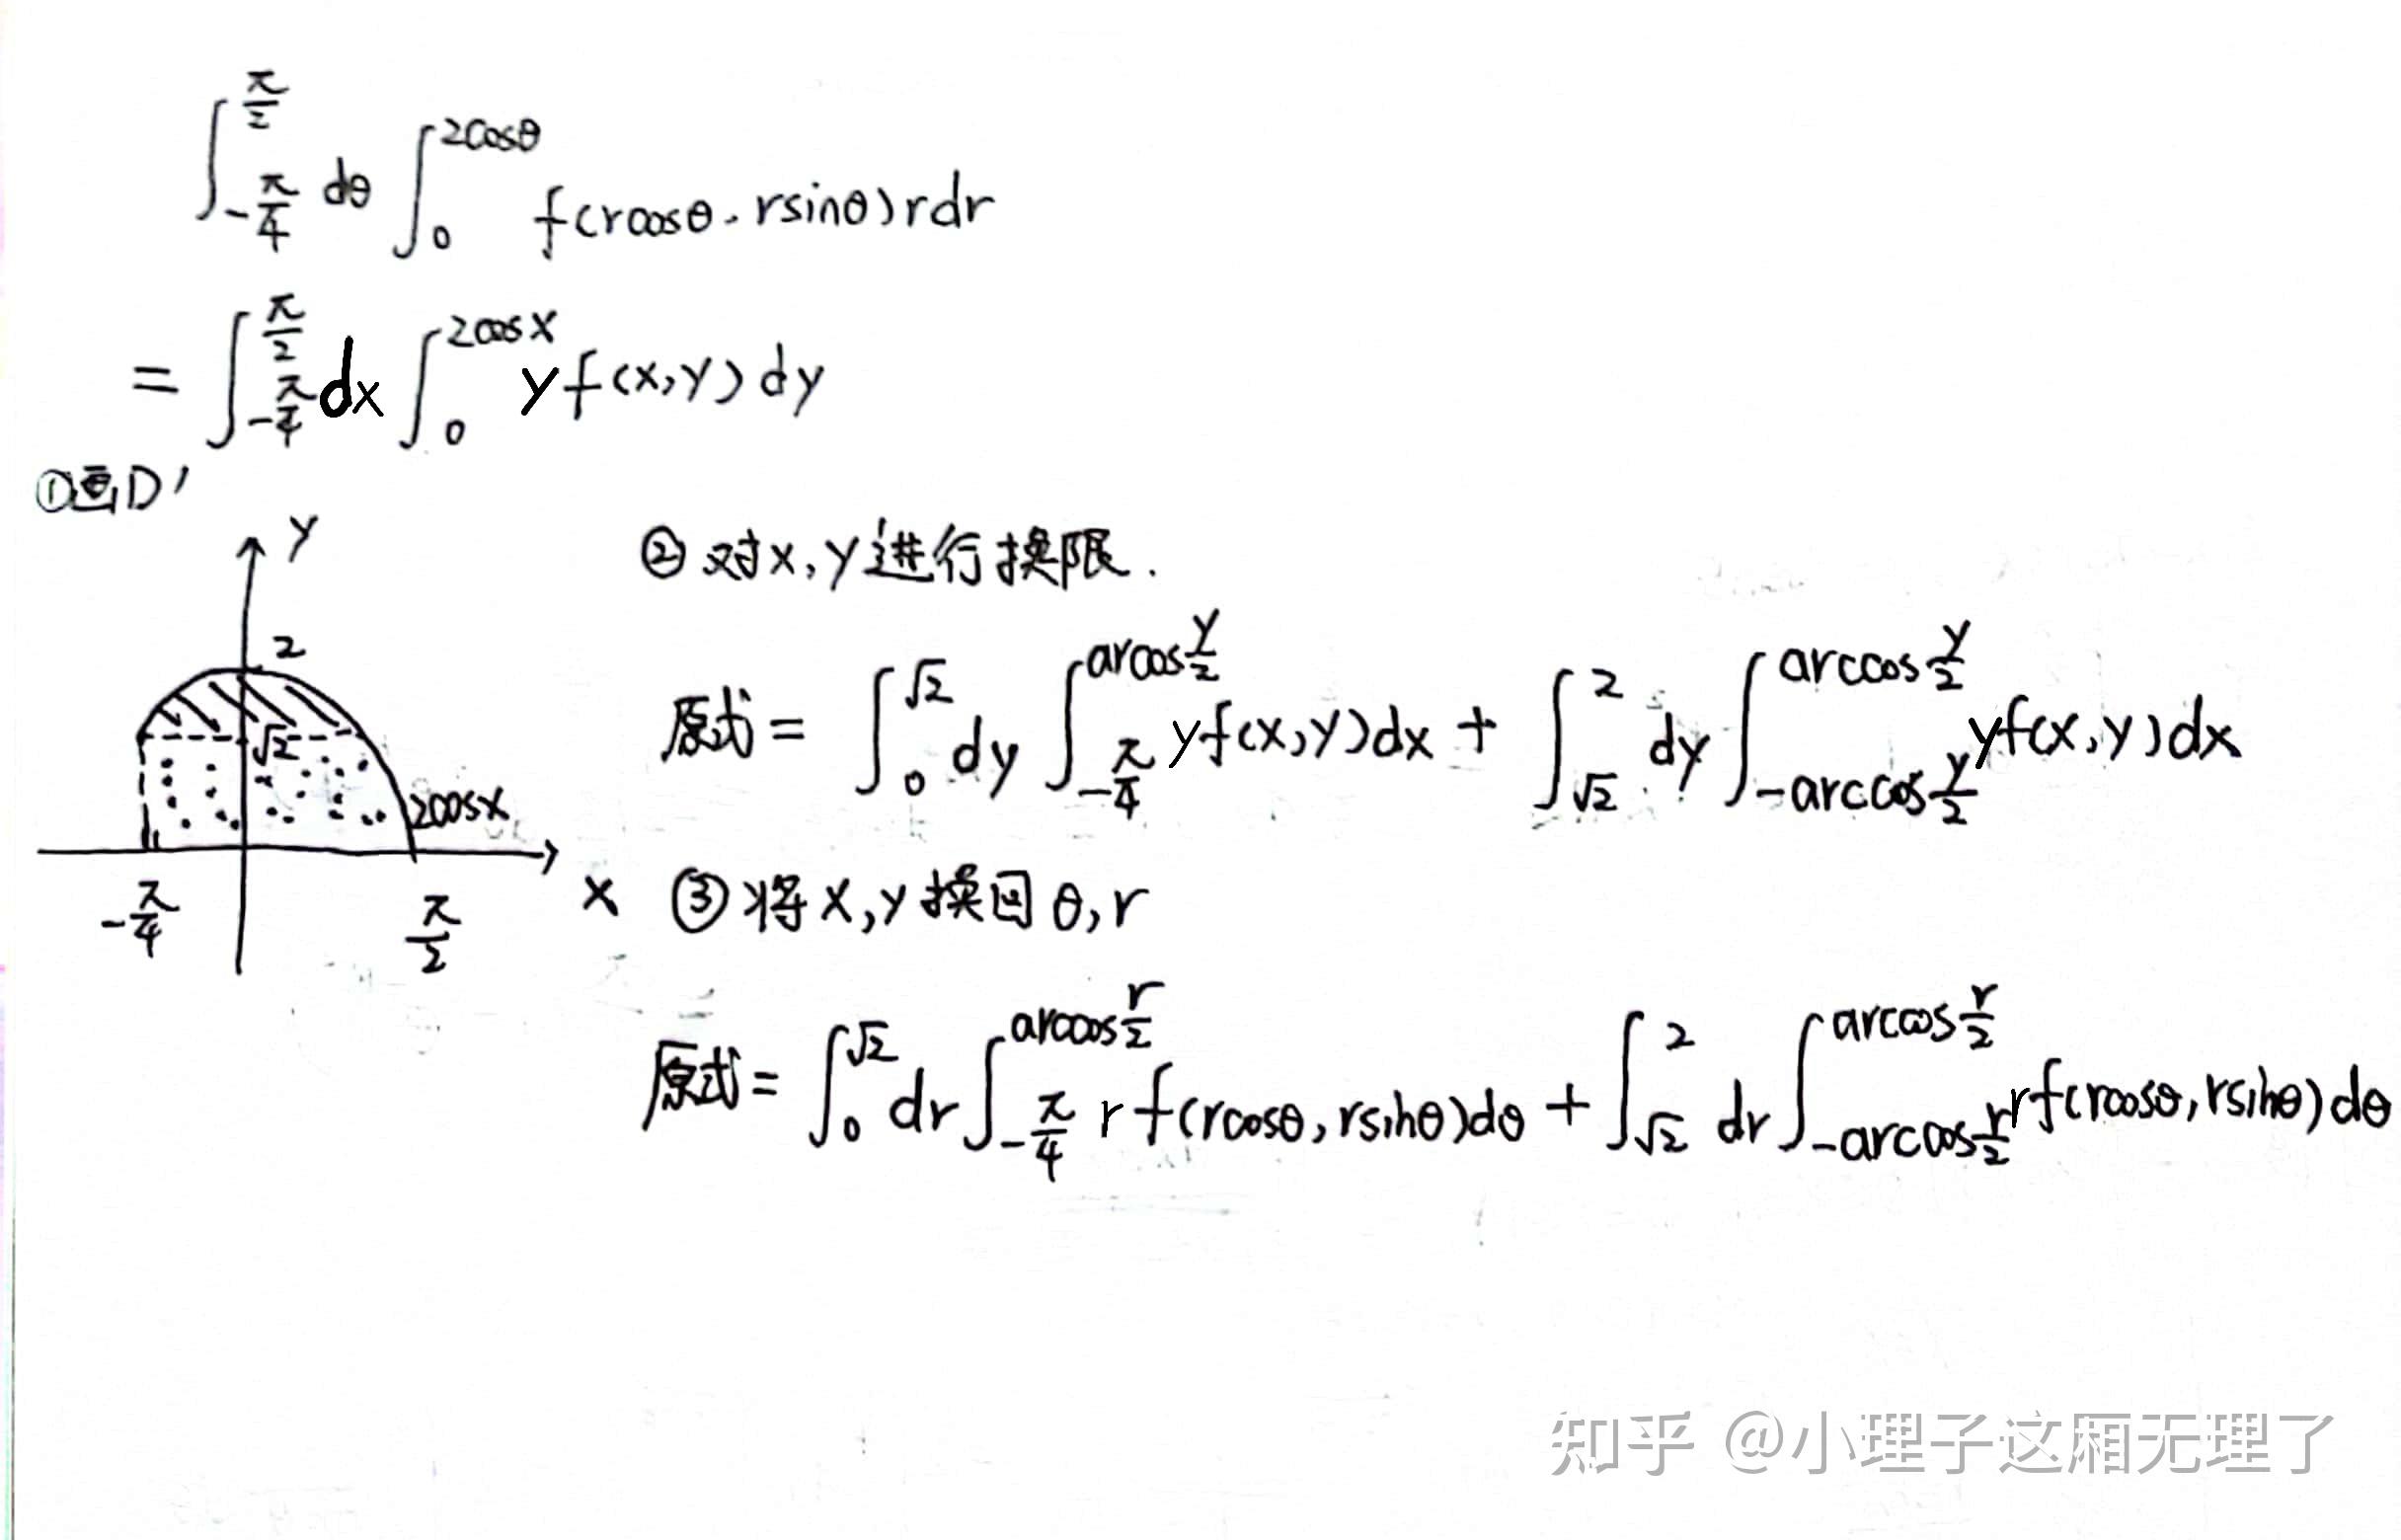 ∫_{-π/4}^{π/2} dθ ∫_0^{2cosθ} f(rcosθ, rsinθ)rdr
= ∫_{-π/4}^{π/2} dx ∫_0^{2cosx} y f(x,y) dy
①画D'
y
2
√2
2cosx
-π/4
π/2
x
②对x,y进行换限.
原式 = ∫_0^{√2} dy ∫_{-π/4}^{arcos y/2} yf(x,y)dx + ∫_{√2}^2 dy ∫_{-arccos y/2}^{arccos y/2} yf(x,y)dx
③将x,y换回θ,r
原式 = ∫_0^{√2} dr ∫_{-π/4}^{arccos r/2} r f(rcosθ, rsinθ)dθ + ∫_{√2}^2 dr ∫_{-arccos r/2}^{arccos r/2} rf(rcosθ, rsinθ)dθ
知乎 @小理子这厢无理了